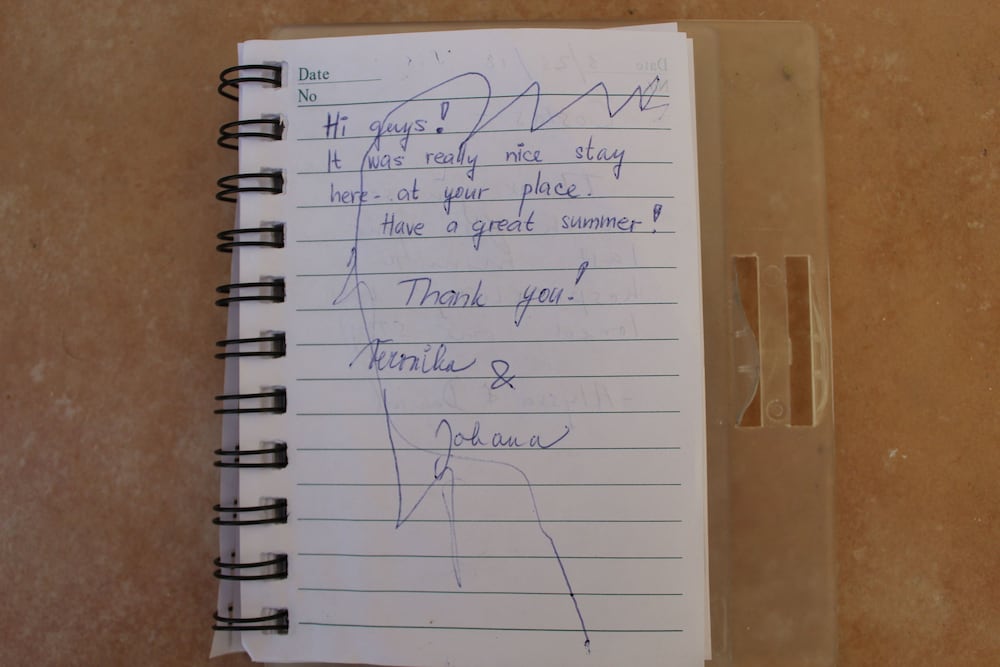 Date
No
Hi guys!
It was really nice stay
here - at your place.
Have a great summer!
Thank you!
Veronika &
Johana